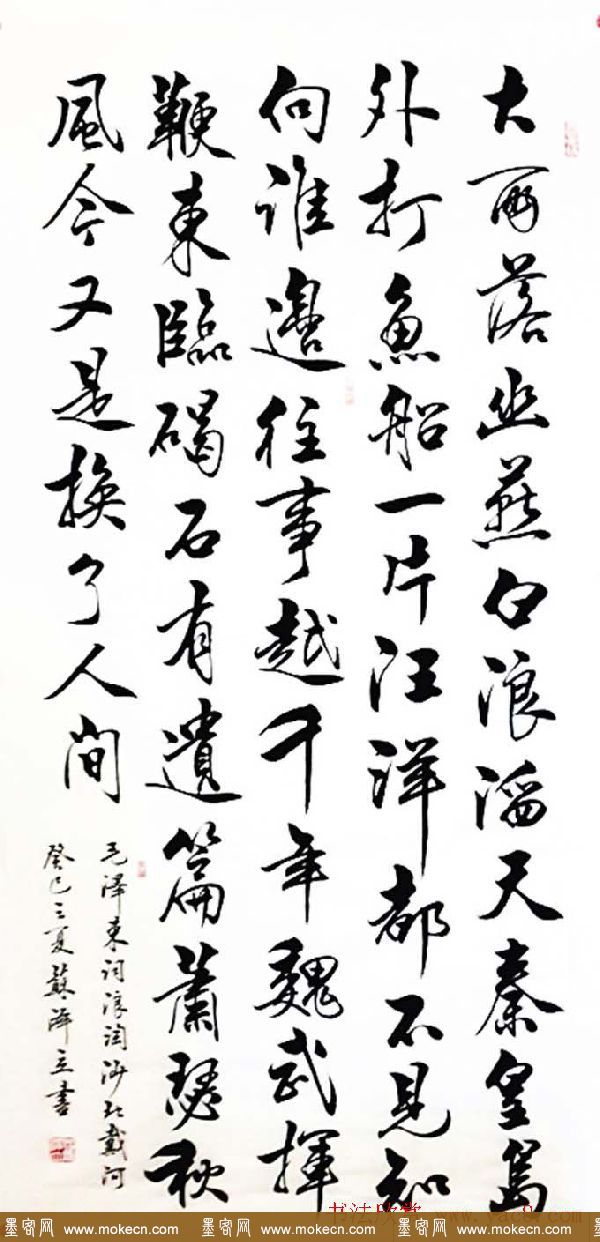 大雨落幽燕白浪滔天秦皇島
外打魚船一片汪洋都不見知
向誰邊往事越千年魏武揮
鞭東臨碣石有遺篇蕭瑟秋
風今又是換了人間
毛澤東詞浪淘沙北戴河
癸巳之夏蘇澤立書
书法欣赏 www.yac8.com
墨客网 www.mokecn.com 墨客网 www.mokecn.com 墨客网 www.mokecn.com